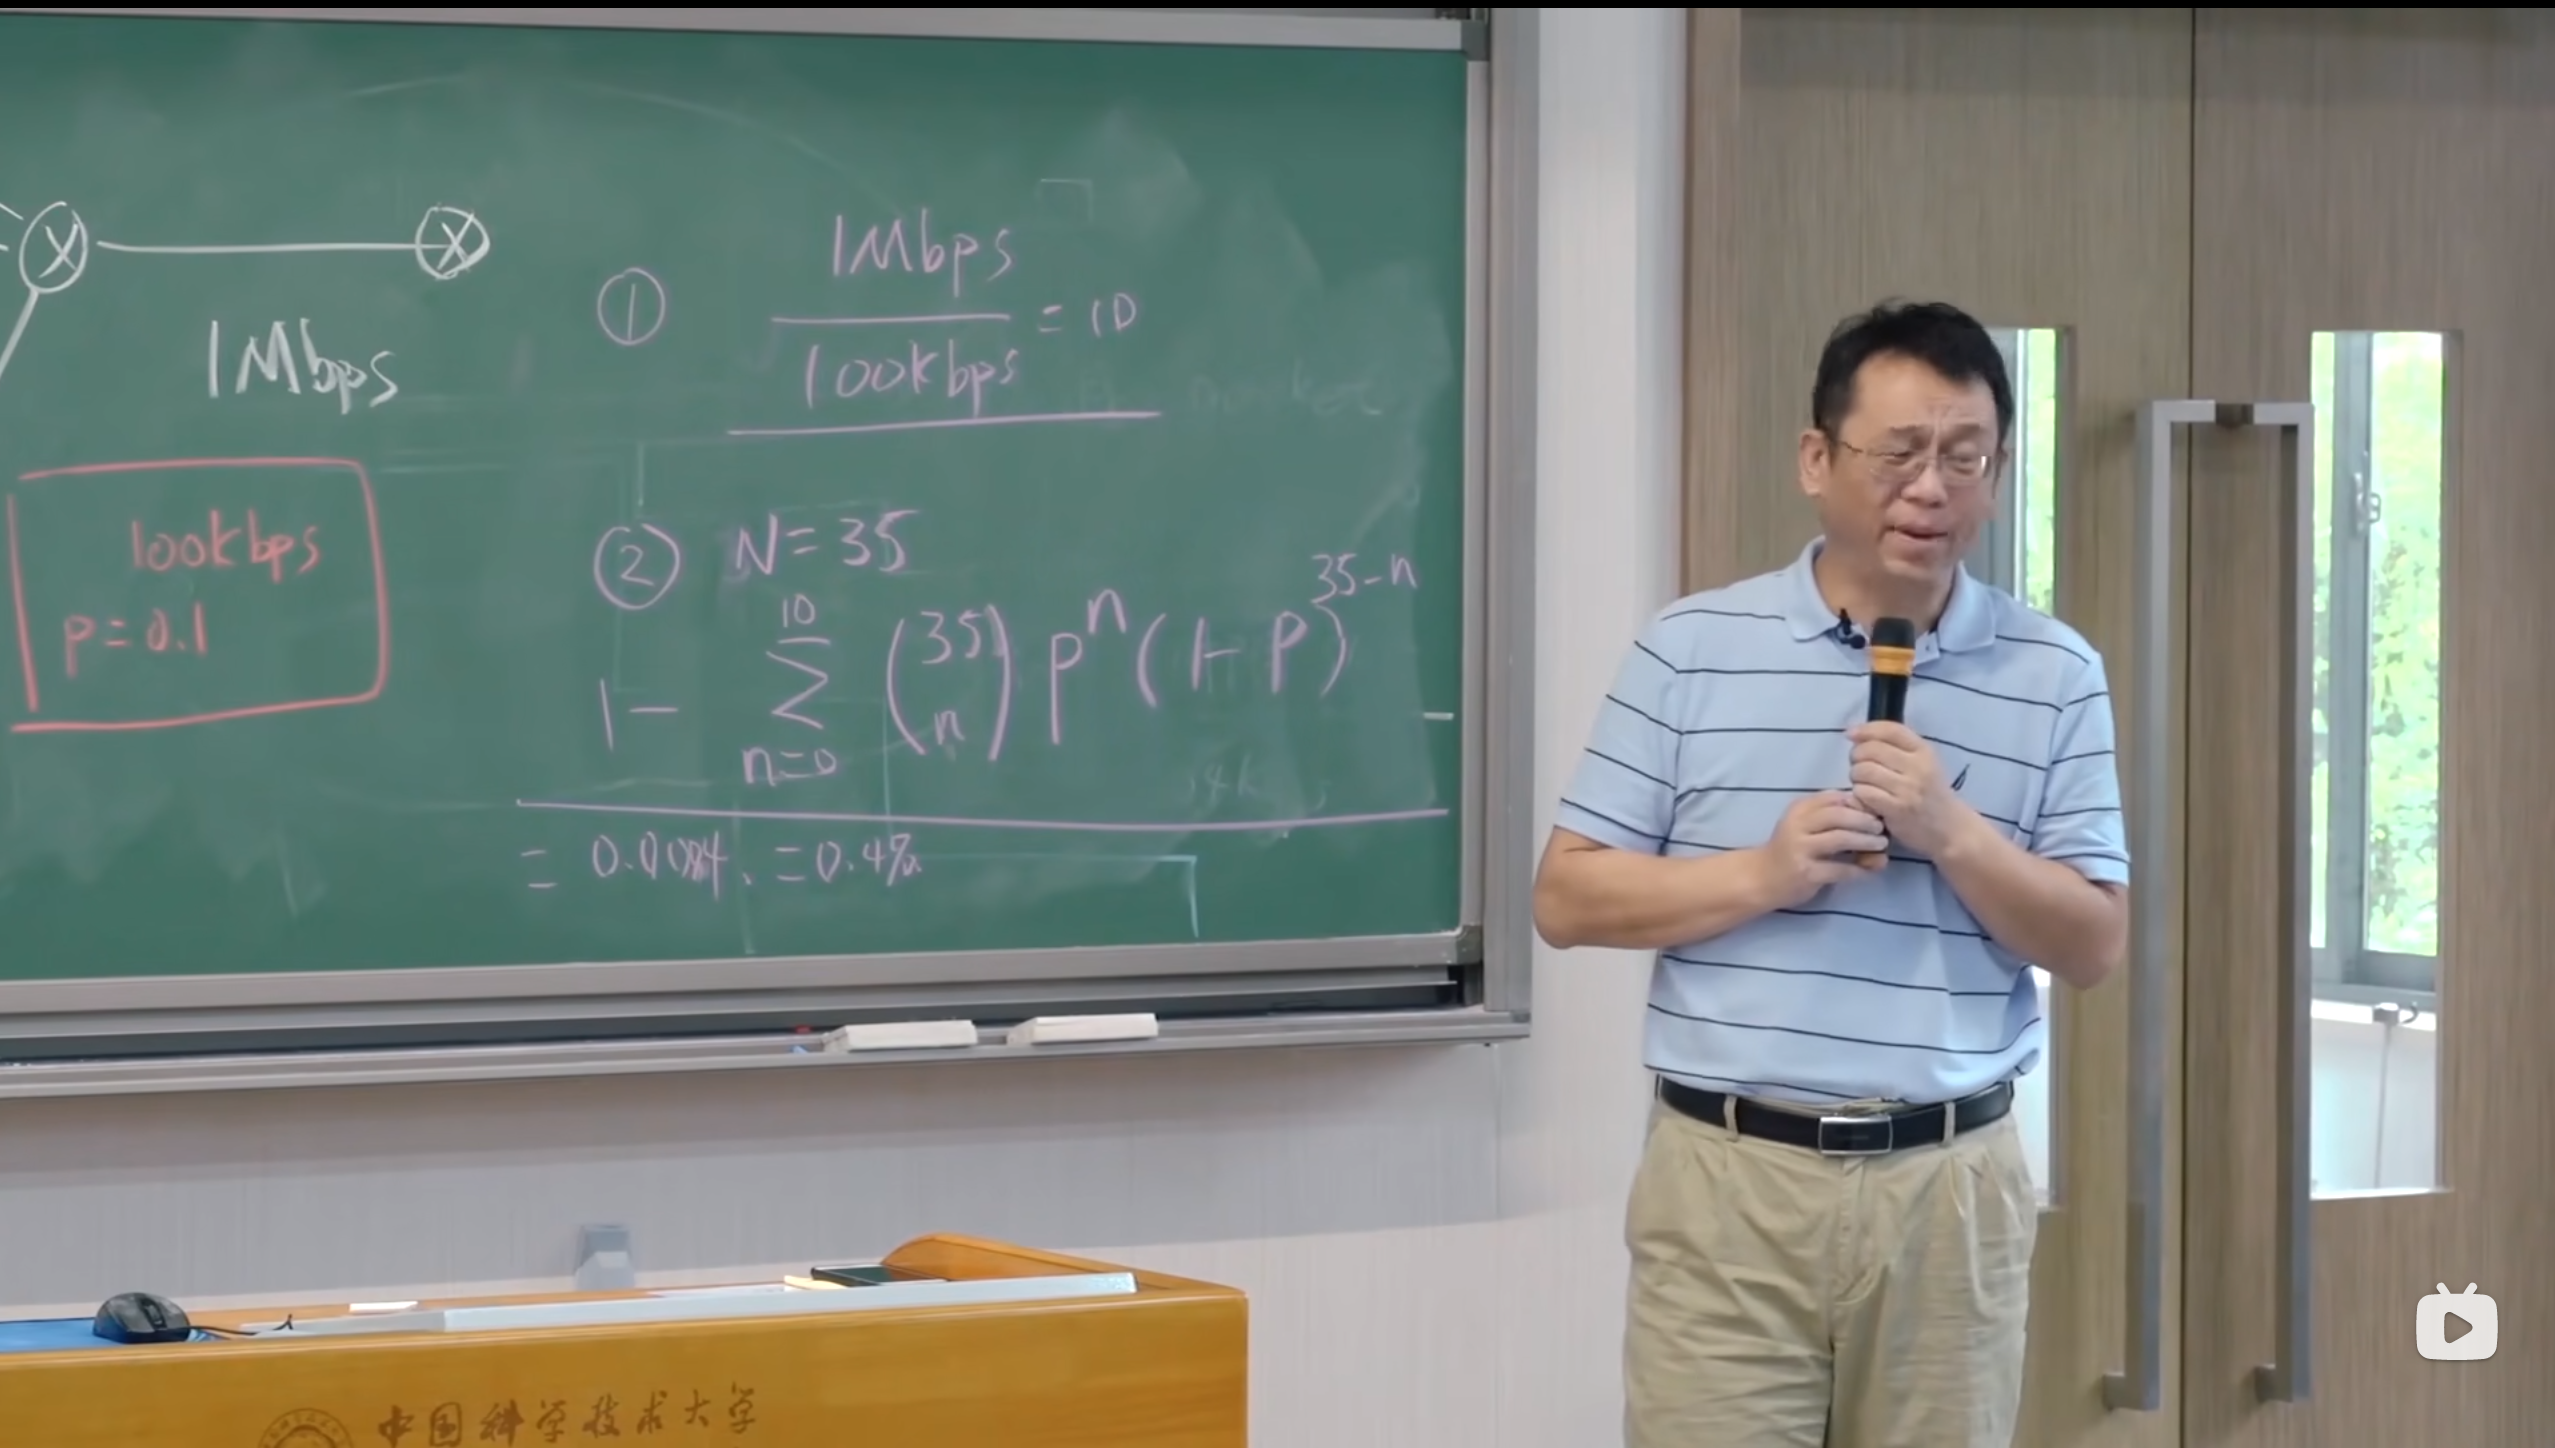 1Mbps
100kbps
p=0.1
① 1Mbps
100kbps = 10
② N=35
10
1- Σ (35 n) p^n (1-p)^35-n
n=0
= 0.0004. =0.4‰
中国科学技术大学